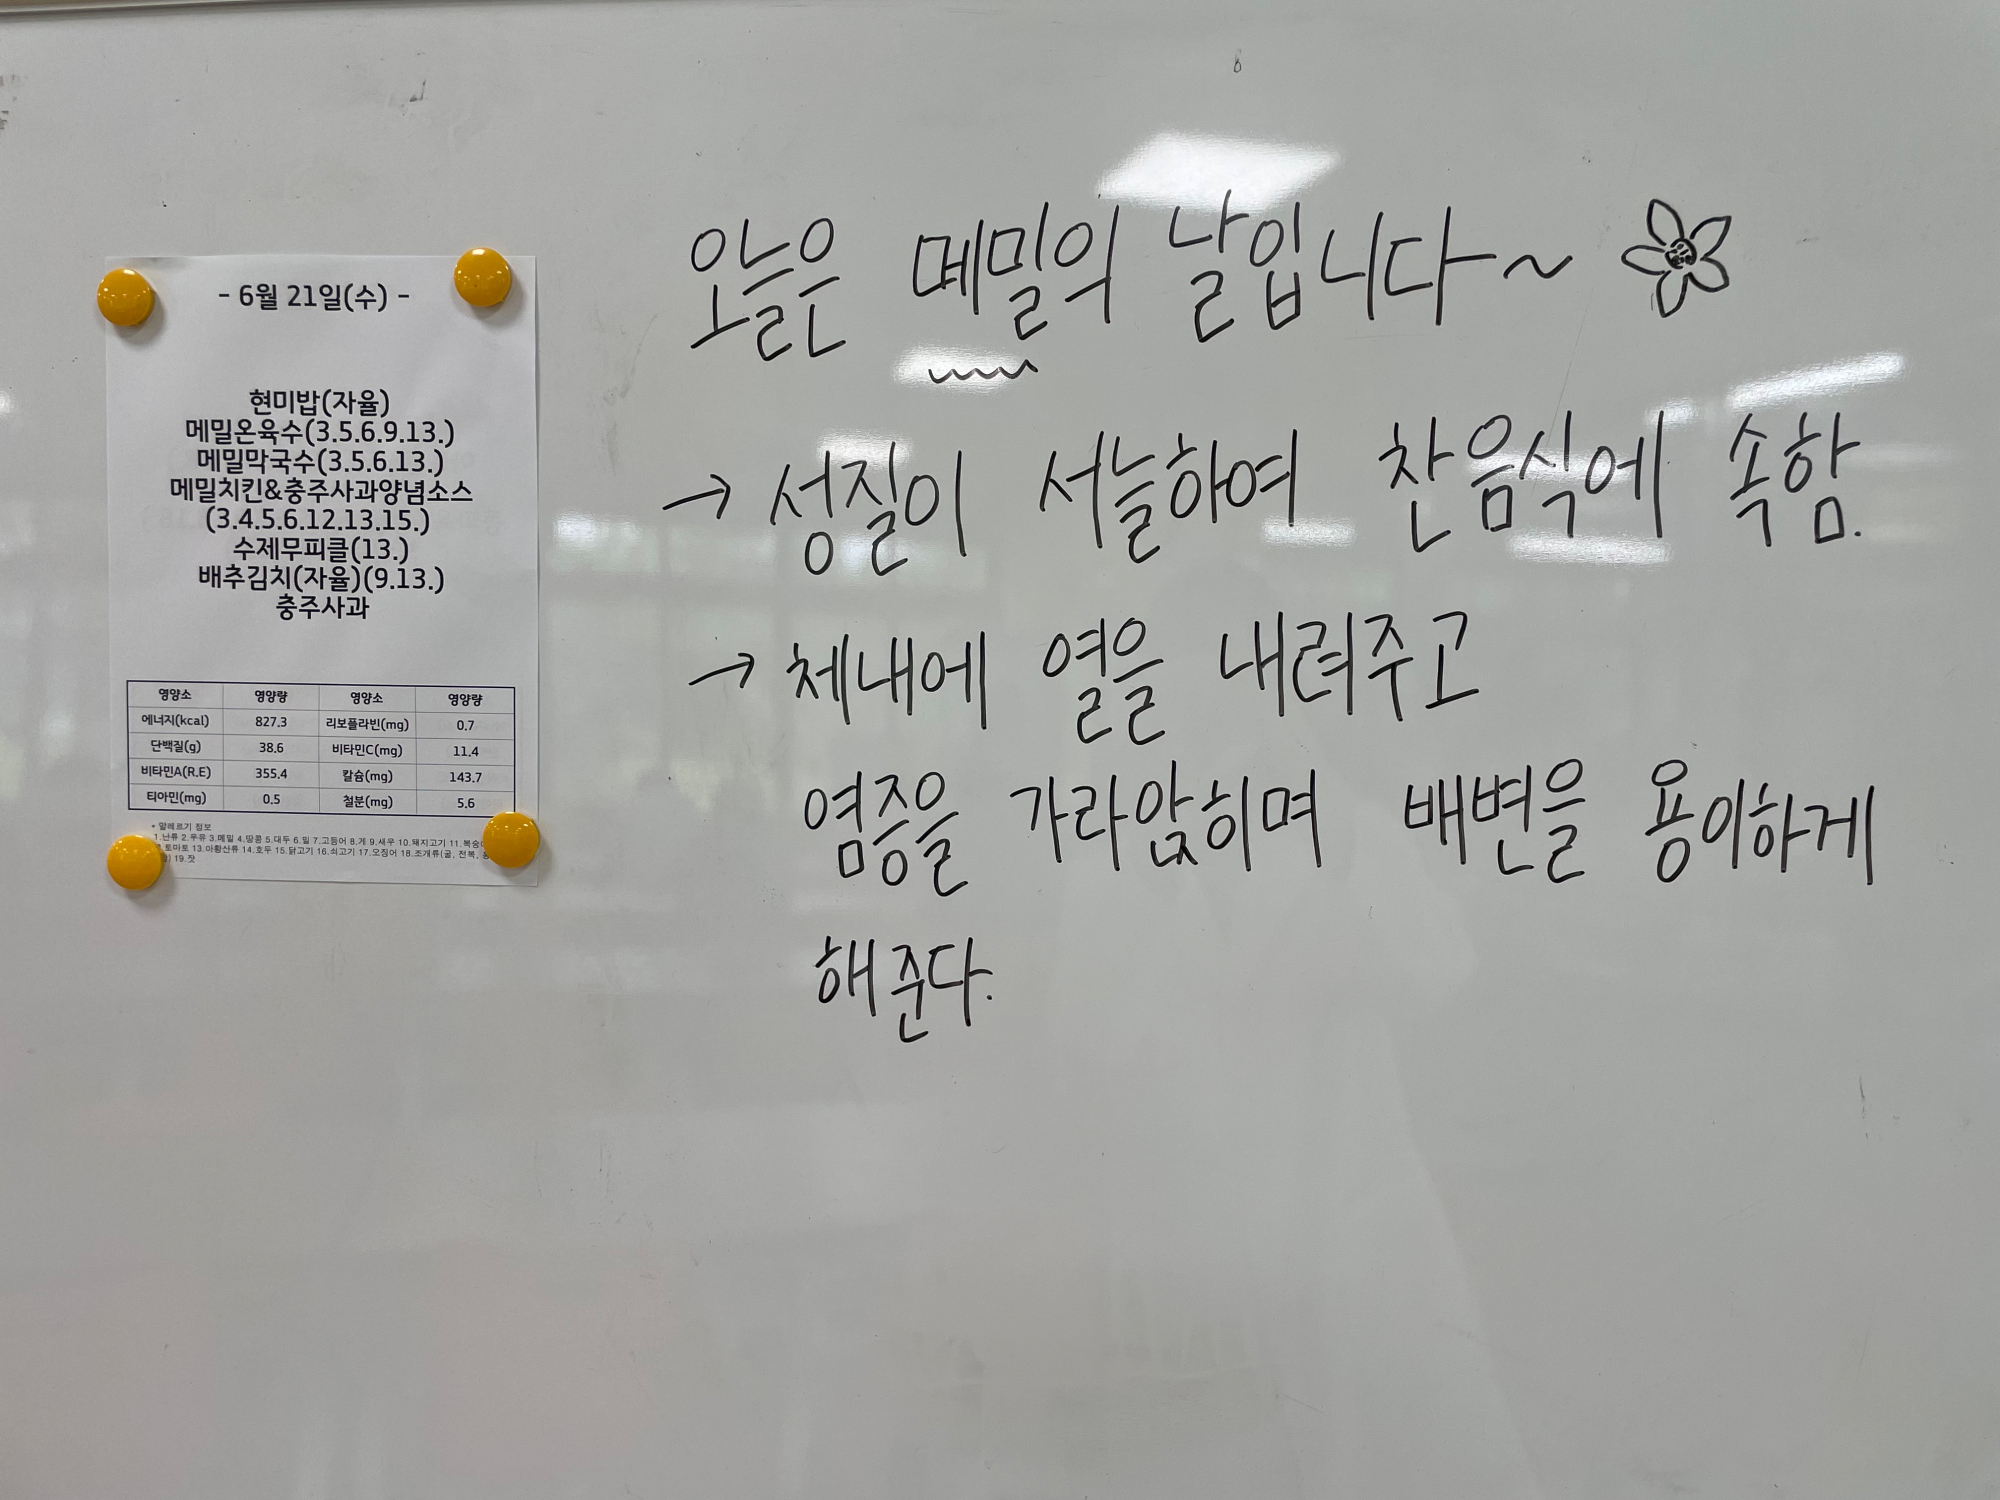 - 6월 21일(수) -
현미밥(자율)
메밀온육수(3.5.6.9.13.)
메밀막국수(3.5.6.13.)
메밀치킨&충주사과양념소스
(3.4.5.6.12.13.15.)
수제무피클(13.)
배추김치(자율)(9.13.)
충주사과
영양소 영양량 영양소 영양량
에너지(kcal) 827.3 리보플라빈(mg) 0.7
단백질(g) 38.6 비타민C(mg) 11.4
비타민A(R.E) 355.4 칼슘(mg) 143.7
티아민(mg) 0.5 철분(mg) 5.6
* 알레르기 정보
1.난류 2.우유 3.메밀 4.땅콩 5.대두 6.밀 7.고등어 8.게 9.새우 10.돼지고기 11.복숭아
토마토 13.아황산류 14.호두 15.닭고기 16.쇠고기 17.오징어 18.조개류(굴, 전복,
19.잣
오늘은 메밀의 날입니다~
→ 성질이 서늘하여 찬음식에 속함.
→ 체내에 열을 내려주고
염증을 가라앉히며 배변을 용이하게
해준다.